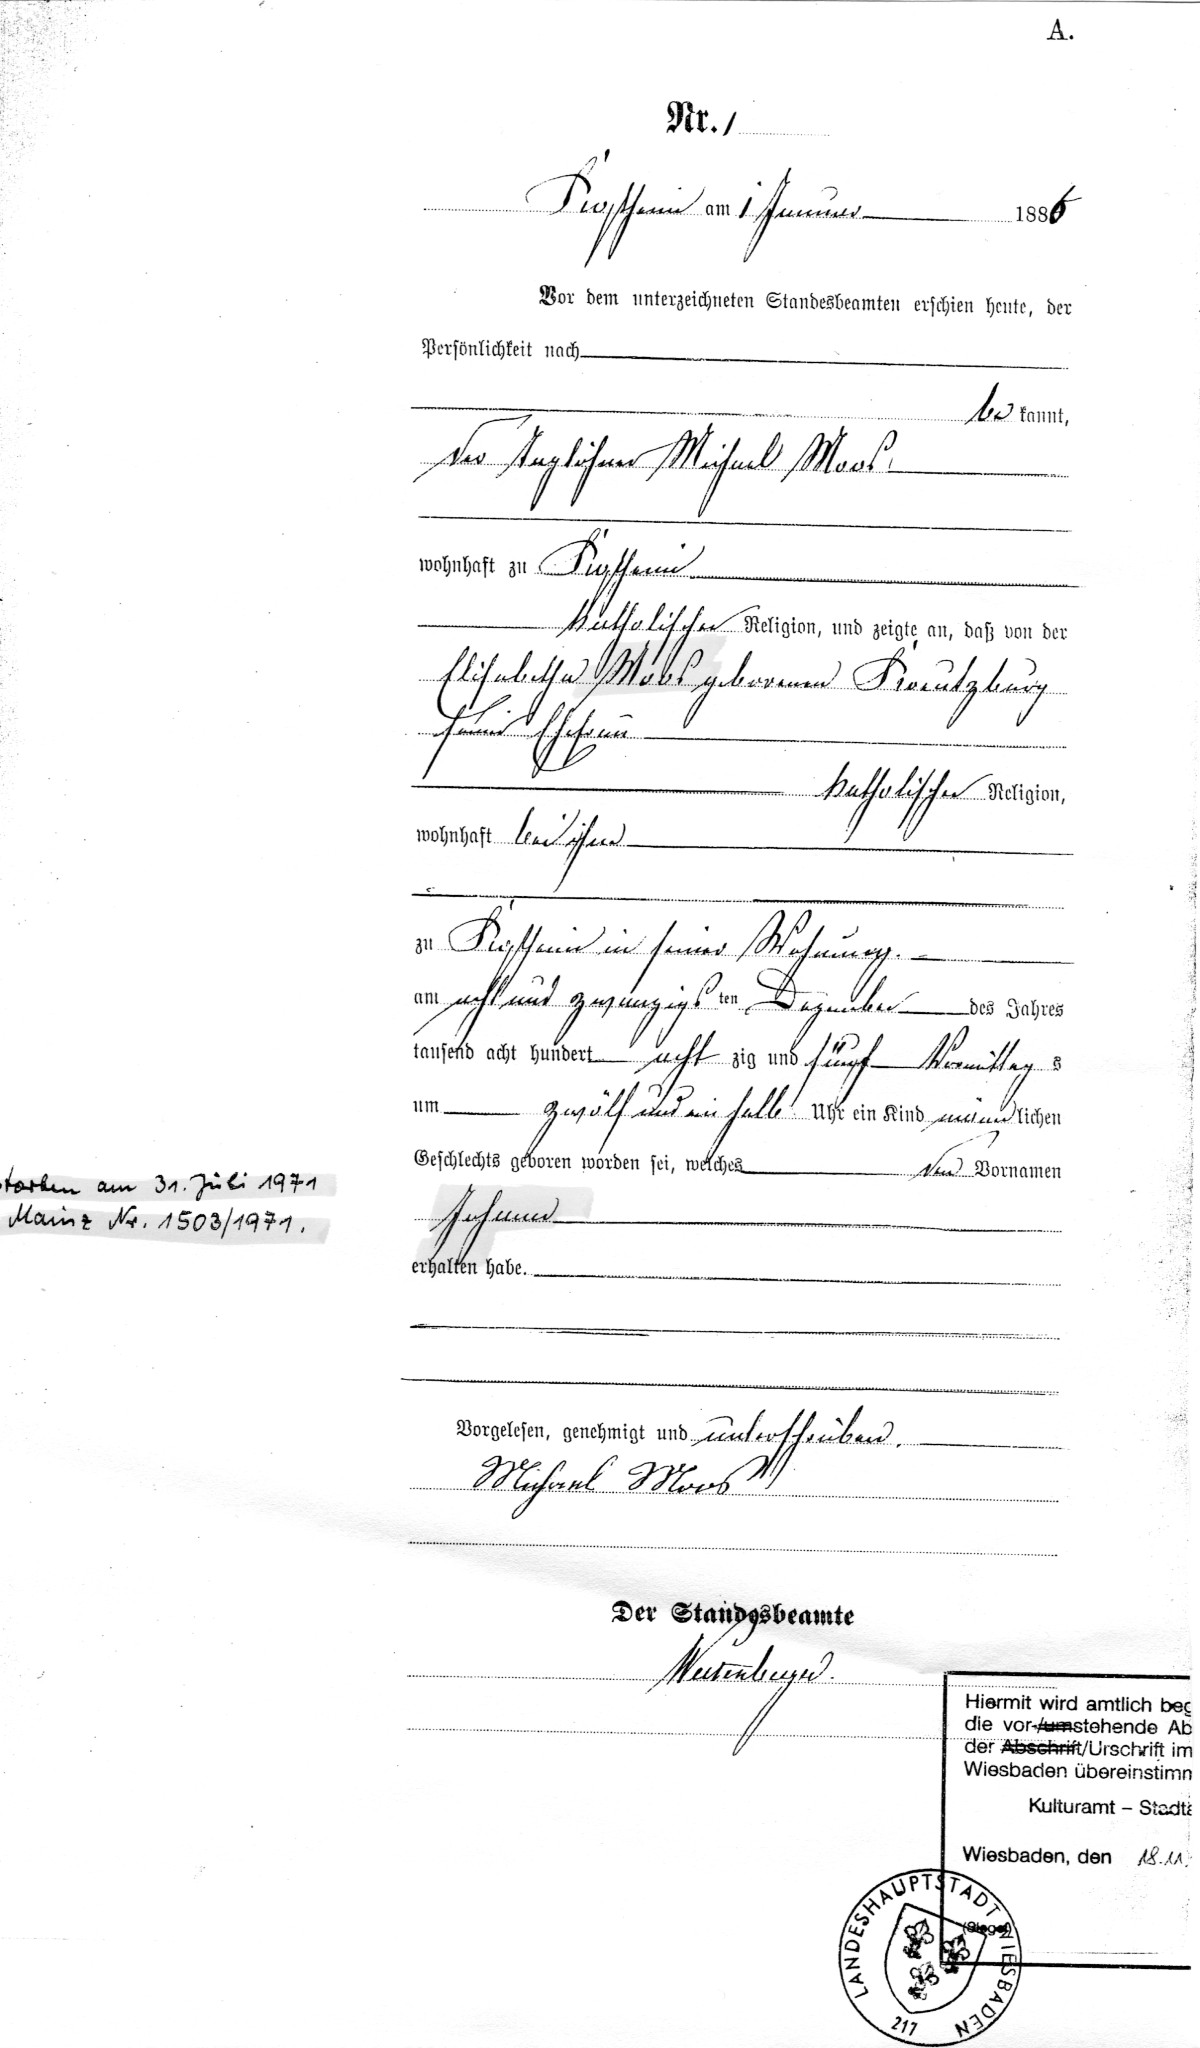 A.
Nr. 1
Kostheim am 1 Januar 1886
Vor dem unterzeichneten Standesbeamten erschien heute, der
Persönlichkeit nach
be kannt,
der Taglöhner Michael Moos.
wohnhaft zu Kostheim
katholischer Religion, und zeigte an, daß von der
Elisabetha Moos geborenen Kreutzburg
seiner Ehefrau
katholischer Religion,
wohnhaft bei ihm
zu Kostheim in seiner Wohnung.
am acht und zwanzigs ten Dezember des Jahres
tausend acht hundert acht zig und fünf Vormittag s
um zwölf und ein halb Uhr ein Kind männ lichen
Geschlechts geboren worden sei, welches den Vornamen
storben am 31. Juli 1971
Mainz Nr. 1503/1971.
Johann
erhalten habe.
Vorgelesen, genehmigt und unterschrieben.
Michael Moos
Der Standesbeamte
Hiermit wird amtlich beg
die vor-/umstehende Ab
der Abschrift/Urschrift im
Wiesbaden übereinstimm
Kulturamt – Stadta
Wiesbaden, den 18.11.
(Siegel)
LANDESHAUPTSTADT WIESBADEN
217